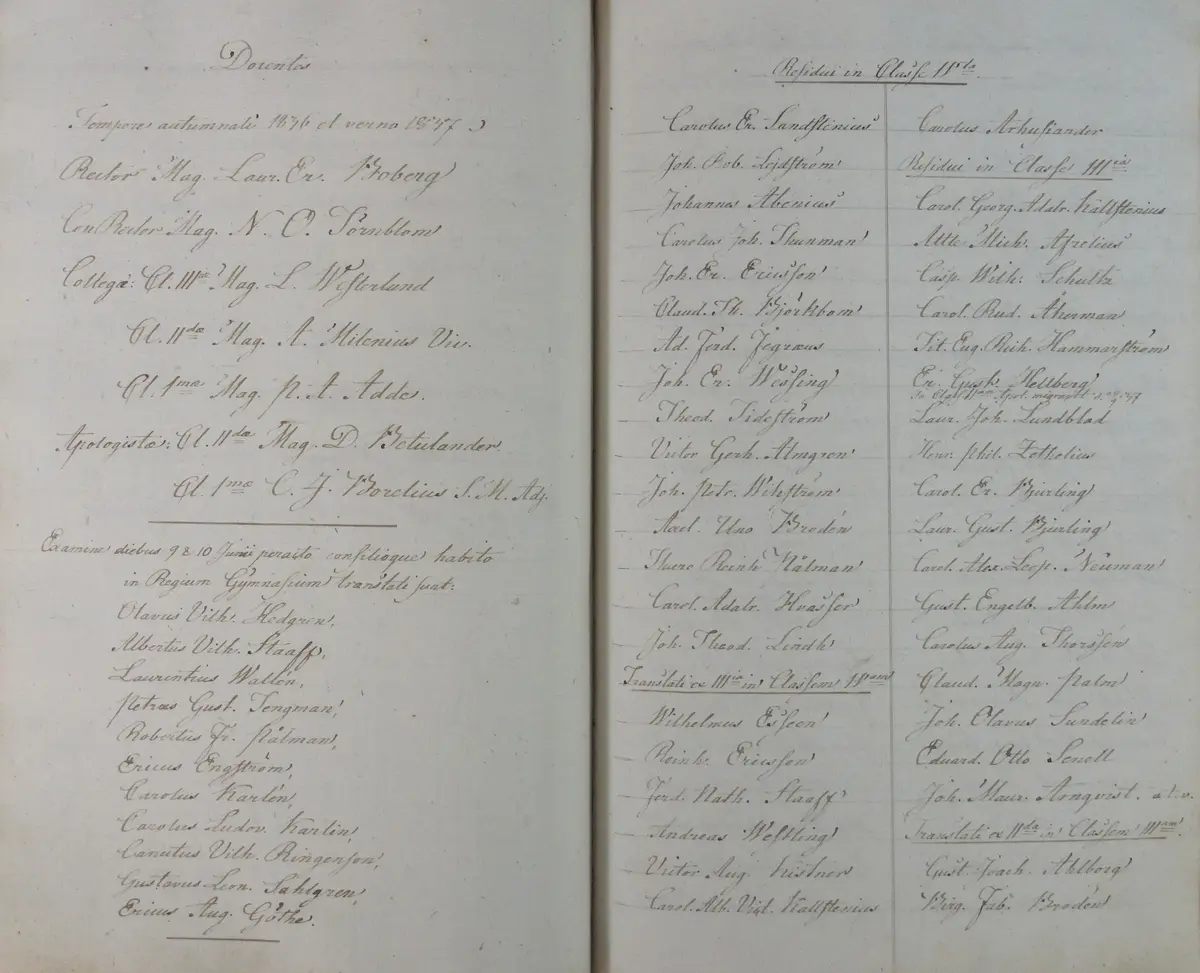 Docentes
Tempore autumnali 1846 et verno 1847
Rector Mag. Laur. Er. Boberg
Con Rector Mag. N. O. Törnblom
Collegæ: Cl. IIIæ Mag. L. Westerlund
Cl. IIdæ Mag. A. Milenius Viv.
Cl. 1mæ Mag. P. A. Adde.
Apologistæ: Cl. IIdæ Mag. D. Betulander
Cl. 1mæ C. J. Borelius S. M. Adj.
Examine diebus 9 & 10 Junii peracto consilioque habito
in Regium Gymnasium translati sunt:
Olavus Vilh. Hedgren,
Albertus Vilh. Staaff,
Laurentius Wallén,
Petrus Gust. Tengman,
Robertus Fr. Pålman,
Ericus Engström,
Carolus Karlén,
Carolus Ludov. Karlin,
Canutus Vilh. Ringenson,
Gustavus Leon. Sahlgren,
Ericus Aug. Göthe.
Residui in Classe IVta
Carolus Er. Sandstenius
Joh. Rob. Lejdström
Johannes Abenius
Carolus Joh. Thunman
Joh. Er. Ericsson
Claud. Th. Björkbom
Ad. Ferd. Jegræus
Joh. Er. Wessing
Theod. Tideström
Victor Gerh. Almgren
Joh. Petr. Wikström
Axel Uno Brodén
Thure Reinh. Pålman
Carol. Adalr. Hvasser
Joh. Theod. Lindh
Translati ex IIIia in Classem IVam
Wilhelmus Esseen
Reinh. Ericsson
Ferd. Nath. Staaff
Andreas Westling
Victor Aug. Kistner
Carol. Alb. Vict. Kallstenius
Carolus Arhusiander
Residui in Classe IIIia
Carol. Georg. Adalr. Kallstenius
Atte Mich. Afzelius
Casp. Wilh. Schultz
Carol. Rud. Åkerman
Tit. Eug. Rich. Hammarström
Er. Gust. Hellberg
In Class. IIam Apol. migravit
Laur. Joh. Lundblad
Henr. Phil. Zethelius
Carol. Er. Bjurling
Laur. Gust. Bjurling
Carol. Alex. Leop. Neuman
Gust. Engelb. Ahlm
Carolus Aug. Thorssén
Claud. Magn. Palm
Joh. Olavus Sundelin
Eduard. Otto Senell
Joh. Maur. Arnqvist.
Translati ex IIda in Classem IIIam.
Gust. Joach. Ahlborg
Birg. Fab. Brodén